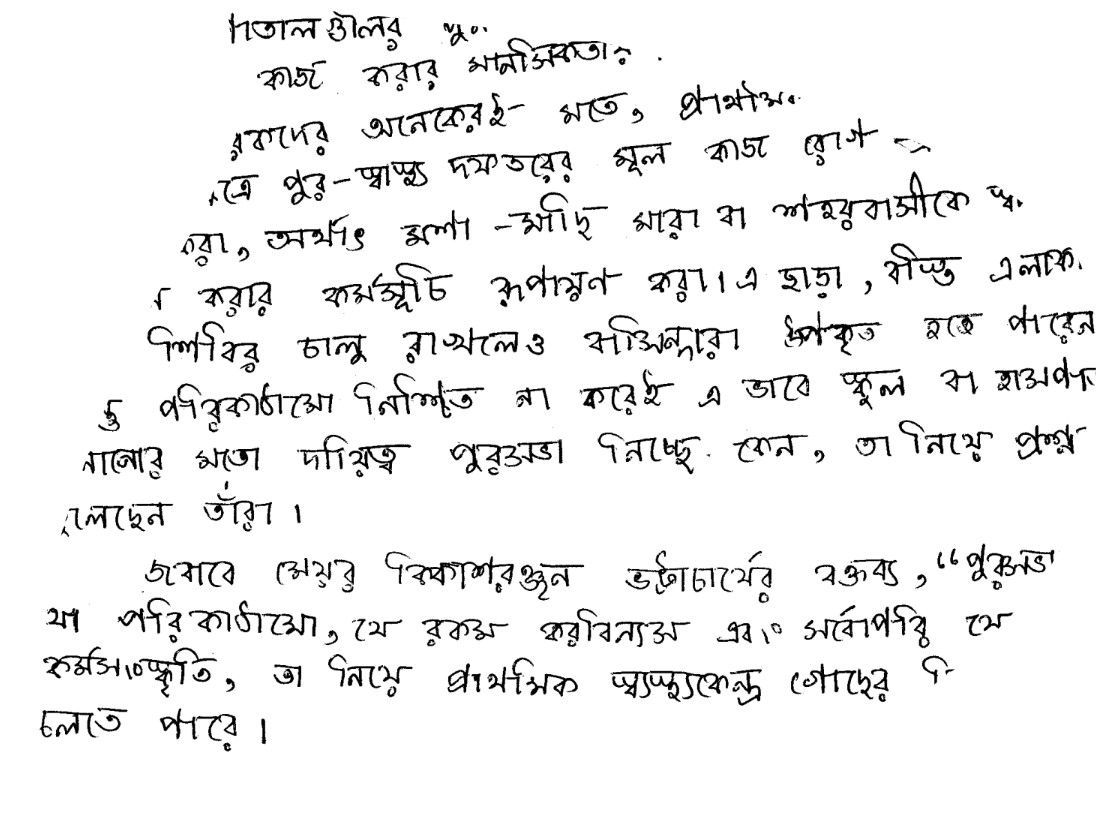 কাজ করার মানসিকতার
অনেকেরই মতে,
পুর-স্বাস্থ্য দফতরের মূল কাজ রোগ
অর্থাৎ মশা-মাছি মারা বা শহরবাসীকে
করার কর্মসূচি রূপায়ণ করা। এ ছাড়া, বস্তি
শিবির চালু রাখলেও বাসিন্দারা উপকৃত হতে পারেন
পরিকাঠামো নিশ্চিত না করেই এ ভাবে স্কুল বা
মতো দায়িত্ব পুরসভা নিচ্ছে কেন, তা নিয়ে প্রশ্ন
তাঁরা।
জবাবে মেয়র বিকাশরঞ্জন ভট্টাচার্যের বক্তব্য, “পুরসভা
যা পরিকাঠামো, যে রকম করবিন্যাস এবং সর্বোপরি যে
কর্মসংস্কৃতি, তা নিয়ে প্রাথমিক স্বাস্থ্যকেন্দ্র গোছের
চলতে পারে।